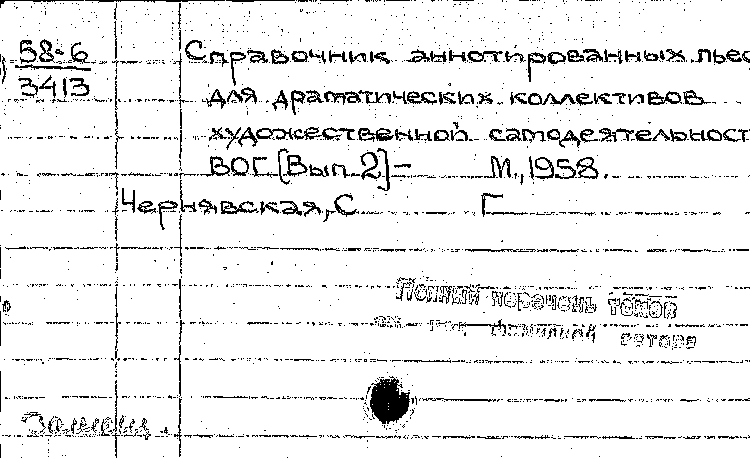 58-6
3413
Справочник аннотированных пьес
для драматических коллективов
художественной самодеятельност
ВОГ. [Вып. 2] –   М., 1958.
Чернявская, С   Г
Полный перечень томов
см. под фамилией автора
Замещ.